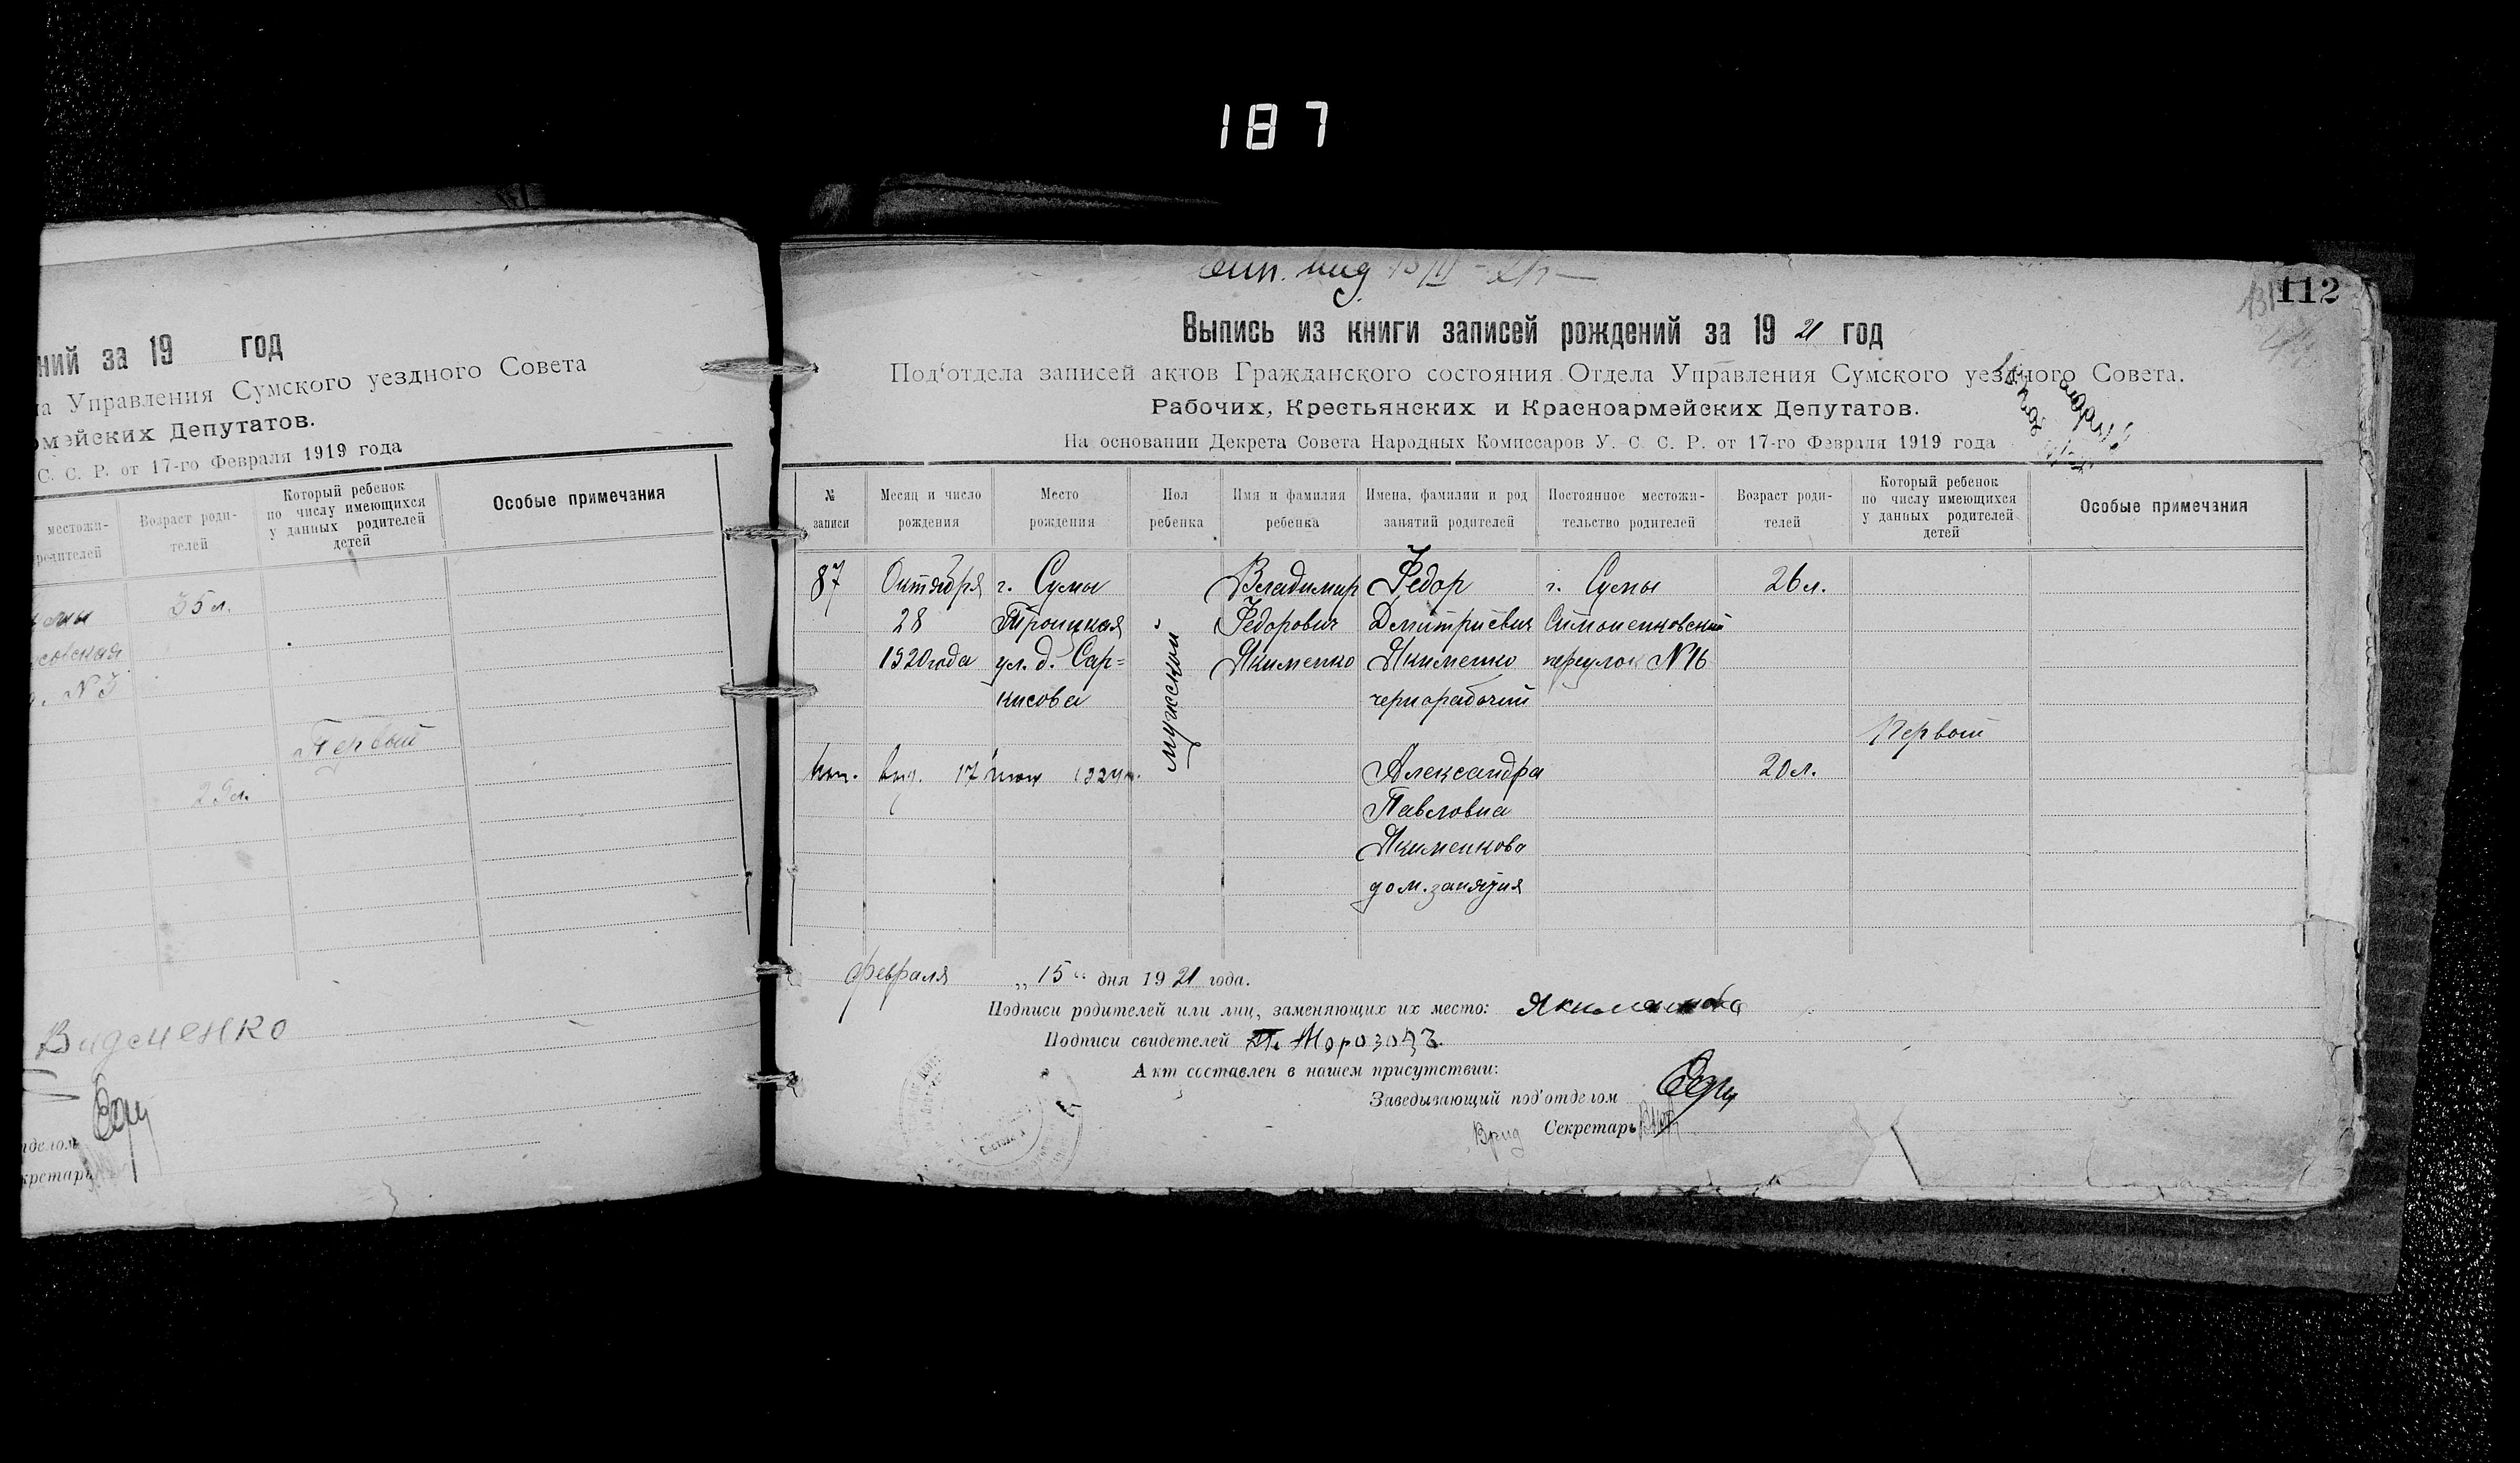 187
ний за 19 год
на Управления Сумского уездного Совета
рмэйских Депутатов.
С. С. Р. от 17-го Февраля 1919 года
местожи-
родителей
Возраст роди-
телей
Который ребенок
по числу имеющихся
у данных родителей
детей
Особые примечания
35 л.
N 3
Первый
29 л.
Видоменко
тделом
кретарь
112
Выпись из книги записей рождений за 19 21 год
Под‘отдела записей актов Гражданского состояния Отдела Управления Сумского уездного Совета.
Рабочих, Крестьянских и Красноармейских Депутатов.
На основании Декрета Совета Народных Комиссаров У. С. С. Р. от 17-го Февраля 1919 года
№
записи
Месяц и число
рождения
Место
рождения
Пол
ребенка
Имя и фамилия
ребенка
Имена, фамилии и род
занятий родителей
Постоянное местожи-
тельство родителей
Возраст роди-
телей
Который ребенок
по числу имеющихся
у данных родителей
детей
Особые примечания
87
Октября
28
1920 года
г. Сумы
Троицкая
ул. д. Сар=
кисова
мужской
Владимир
Федорович
Якименко
Федор
Дмитриевич
Якименко
чернорабочий
г. Сумы
Симоненковский
переулок N 16
26 л.
Первый
Александра
Павловна
Якименкова
дом. занятия
20 л.
февраля „ 15 “ дня 19 21 года.
Подписи родителей или лиц, заменяющих их место: Якименкова
Подписи свидетелей
Акт составлен в нашем присутствии:
Заведывающий под‘отделом
Врид Секретарь